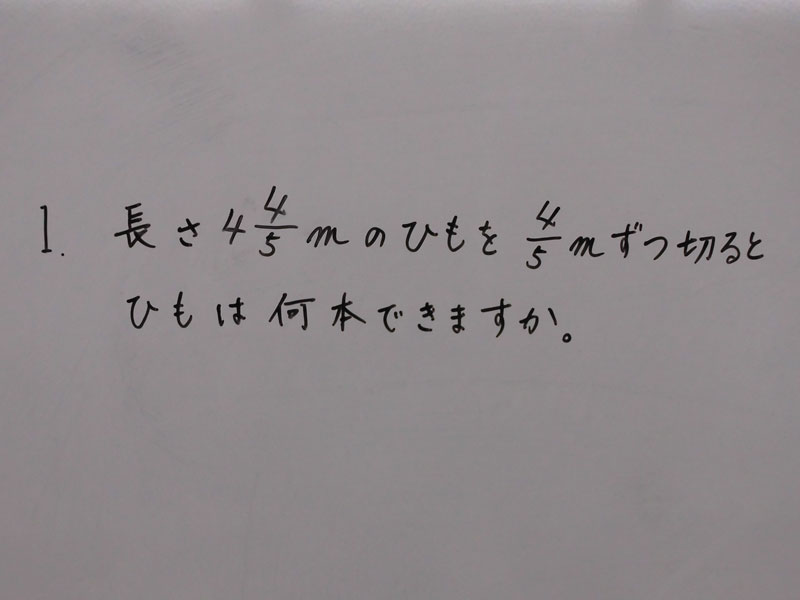 1. 長さ4 4/5 mのひもを 4/5 mずつ切ると
ひもは何本できますか。